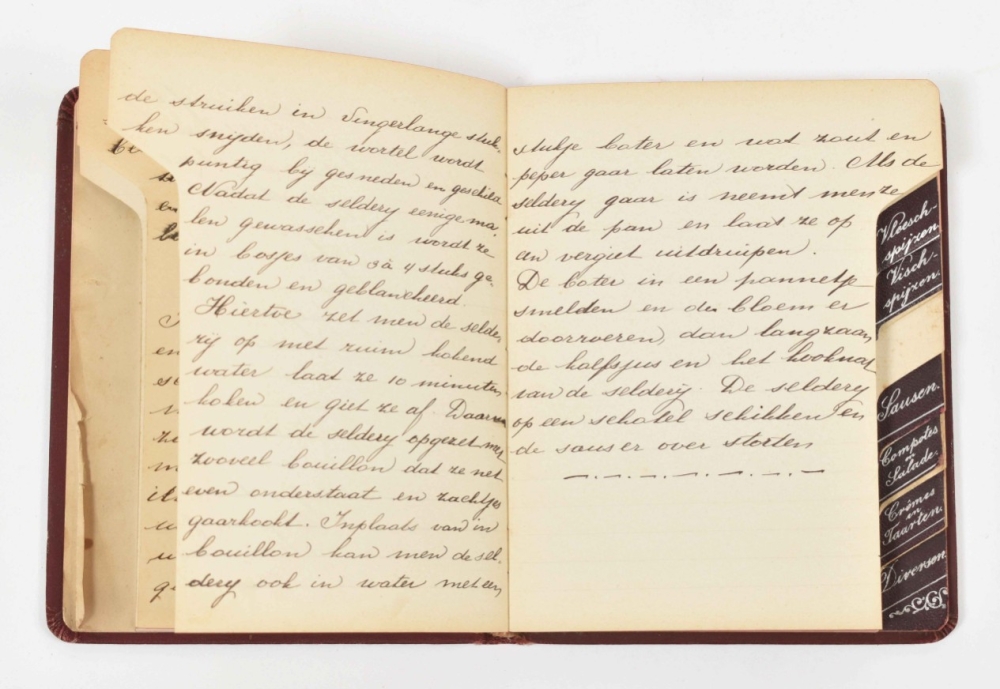 de struiken in vingerlange stuk-
ken snijden, de wortel wordt
puntig by gesneden en geschild
Nadat de seldery eenige ma-
len gewasschen is wordt ze
in bosjes van 3 à 4 stuks ge-
bonden en geblancheerd.
Hiertoe zet men de selde
rij op met ruim kokend
water laat ze 10 minuten
koken en giet ze af. Daarna
wordt de seldery opgezet met
zooveel bouillon dat ze net
even onderstaat en zachtjes
gaarkookt. Inplaats van in
bouillon kan men de sel-
dery ook in water met een
stukje boter en wat zout en
peper gaar laten worden. Als de
seldery gaar is neemt men ze
uit de pan en laat ze op
een vergiet uitdruipen.
De boter in een pannetje
smelten en de bloem er
doorroeren, dan langzaam
de kalfsjus en het kooknat
van de selderij. De seldery
op een schotel schikken en
de saus er over storten
Vleesch-
spijzen
Visch-
spijzen.
Sausen.
Compotes
en
Salade.
Crêmes
en
Taarten.
Diversen.